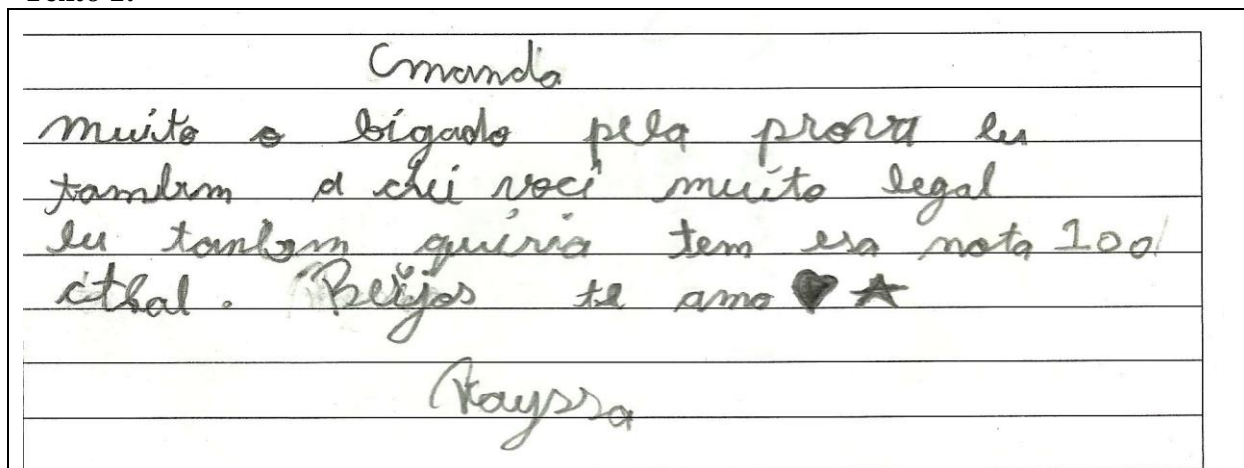 Amanda
muito o bigado pela prova eu
tambem a chei você muito legal
eu tanbem quiria tem esa nota 100
Beijos te amo
Rayssa